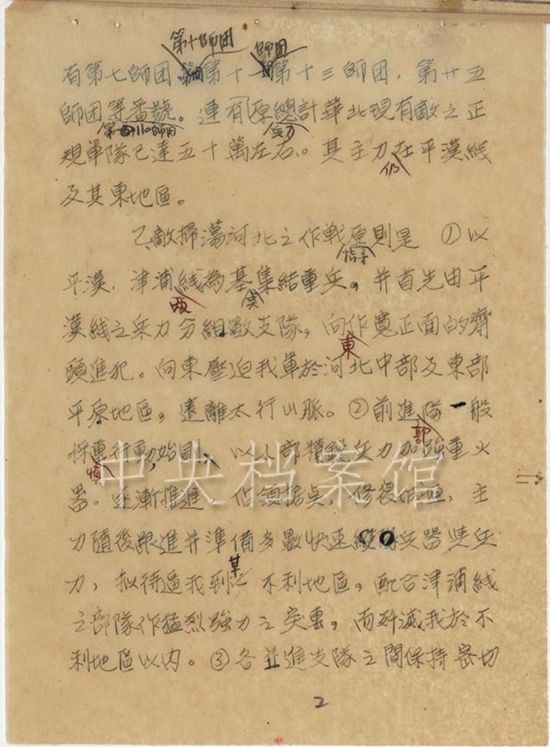 第十師团 師团
有第七師团 第十一 第十三師团，第廿五
師团等番號。連有原總計華北現有敵之正
第一百十师团 兵力
規軍隊已達五十萬左右。其主力仍在平漢綫
及其東地區。
乙敵掃蕩河北之作戰原則是 ①以
平漢，津浦兩綫為基集結重兵。并首先由平
漢綫之兵力分組數支隊，向東作寬正面的齊
頭進犯。向東壓迫我軍於河北中部及東部
平原地區，遠離太行山脈。②前進隊部一般
採慎重行動，以小部精 兵力加強重火
器。逐漸推進 佔領据点，修 主
力隨後跟進并準備多數快速 兵器 兵
力，拟待逼我到某 不利地區，配合津浦綫
之部隊作猛烈強力之突击，而歼滅我於不
利地區以内。③各并進支隊之間保持密切
2
中央档案馆